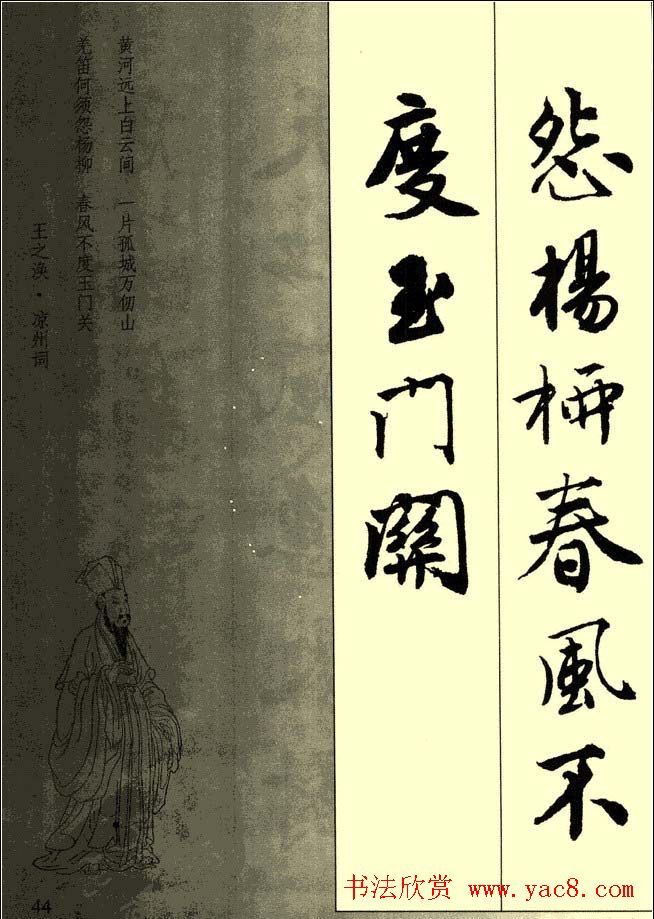 怨楊柳春風不
度玉門關
黄河远上白云间 一片孤城万仞山
羌笛何须怨杨柳 春风不度玉门关
王之涣·凉州词
44
书法欣赏 www.yac8.com